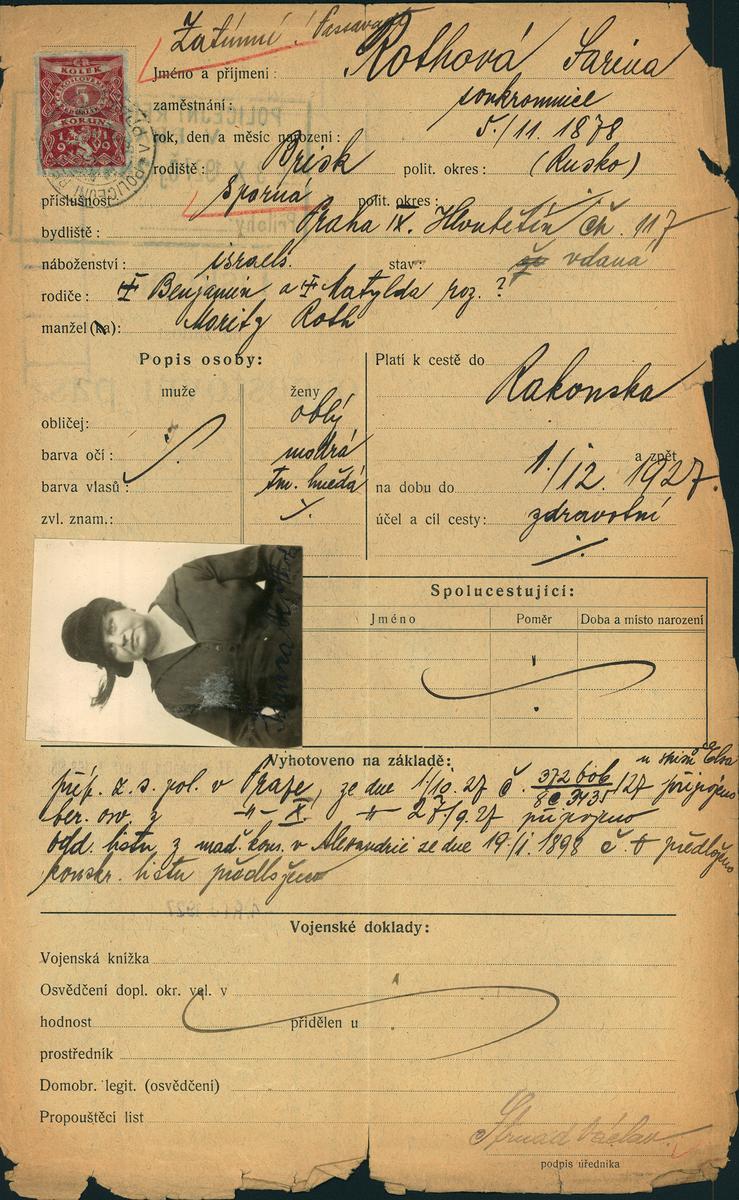 Zatímní!
ČR
KOLEK
5
KORUN
1919
Jméno a příjmení: Rothová Sarina
zaměstnání: soukromnice
rok, den a měsíc narození: 5./11. 1878
rodiště: Brisk polit. okres: (Rusko)
příslušnost: sporná polit. okres:
bydliště: Praha IX. Hloubětín čp. 117
náboženství: israels. stav: vdaná
rodiče: Benjamin a Matylda roz. ?
manžel(ka): Moritz Roth
Popis osoby:
muže ženy
obličej: oblý
barva očí: modrá
barva vlasů: tm. hnědá
zvl. znam.:
Platí k cestě do
Rakouska
a zpět
na dobu do 1./12. 1927.
účel a cíl cesty: zdravotní
Spolucestující:
Jméno Poměr Doba a místo narození
Vyhotoveno na základě:
příp. z. s. pol. v Praze, ze dne 1/10. 27 č. /27 připojeno
ber. osv. z -"- X. -"- 27/9. 27 připojeno
odd. listu z maď. kons. v Alexandrii ze dne 19/1. 1898 č. předloženo
konskr. listu předloženo
Vojenské doklady:
Vojenská knížka
Osvědčení dopl. okr. vel. v
hodnost přidělen u
prostředník
Domobr. legit. (osvědčení)
Propouštěcí list
Strnad Václav
podpis úředníka